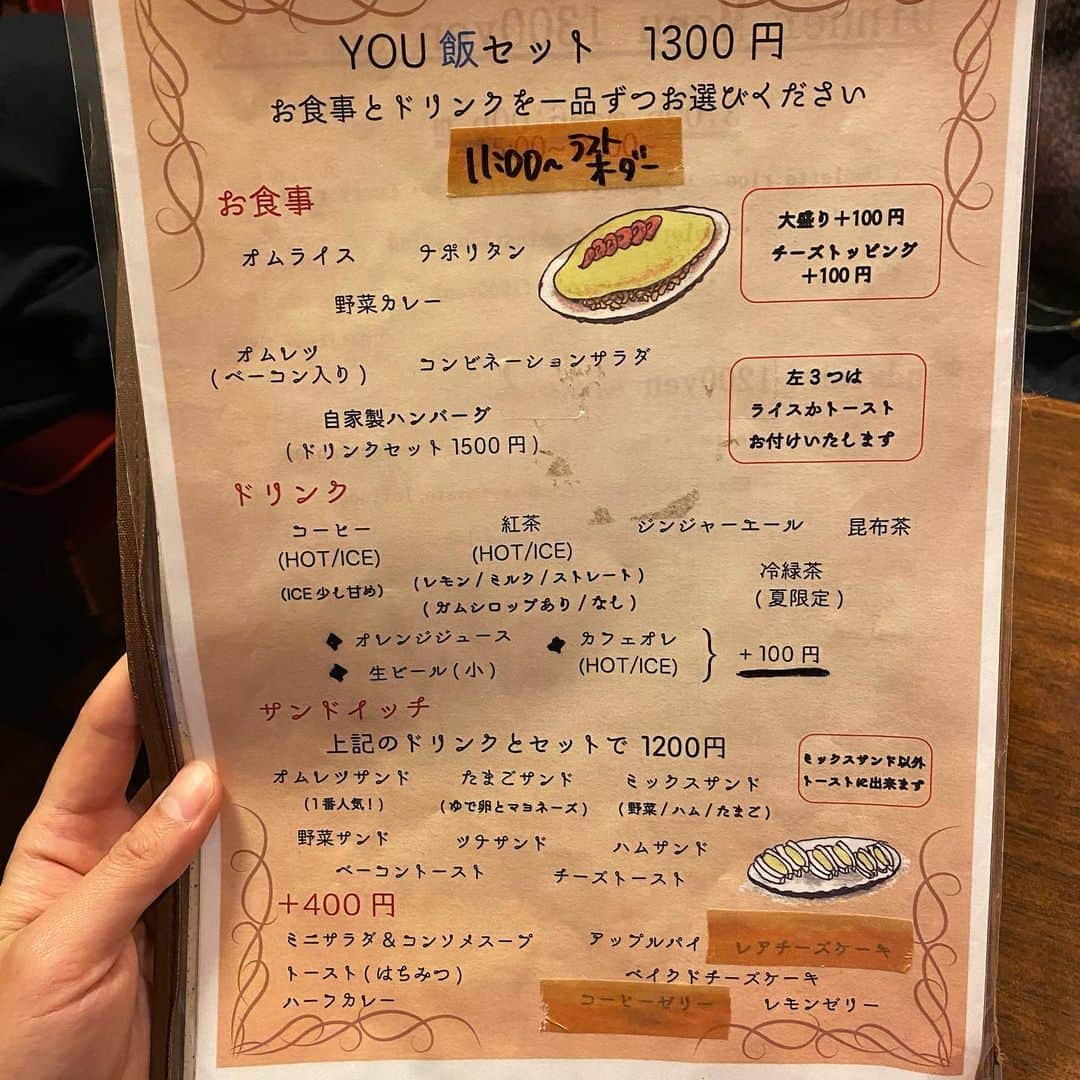 YOU 飯セット 1300 円
お食事とドリンクを一品ずつお選びください
11:00~ラストオーダー
お食事
大盛り+100 円
チーズトッピング
+100 円
オムライス ナポリタン
野菜カレー
オムレツ
(ベーコン入り)
コンビネーションサラダ
左3つは
ライスかトースト
お付けいたします
自家製ハンバーグ
(ドリンクセット 1500 円)
ドリンク
コーヒー
(HOT/ICE)
(ICE 少し甘め)
紅茶
(HOT/ICE)
(レモン/ミルク/ストレート)
(ガムシロップあり/なし)
ジンジャーエール
昆布茶
冷緑茶
(夏限定)
◆ オレンジジュース
◆ 生ビール(小)
◆ カフェオレ
(HOT/ICE)
+100 円
サンドイッチ
上記のドリンクとセットで 1200円
ミックスサンド以外
トーストに出来ます
オムレツサンド
(1番人気!)
たまごサンド
(ゆで卵とマヨネーズ)
ミックスサンド
(野菜/ハム/たまご)
野菜サンド ツナサンド ハムサンド
ベーコントースト チーズトースト
+400 円
ミニサラダ&コンソメスープ アップルパイ レアチーズケーキ
トースト(はちみつ) ベイクドチーズケーキ
ハーフカレー コーヒーゼリー レモンゼリー